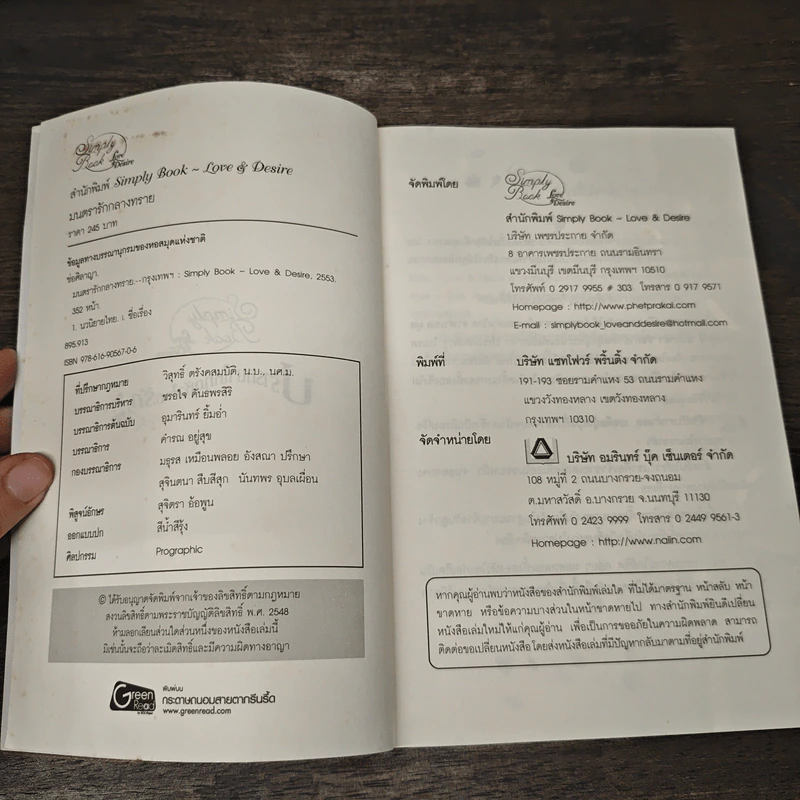 Simply Book Love & Desire
สำนักพิมพ์ Simply Book ~ Love & Desire
มนตรารักกลางทราย
ราคา 245 บาท
ข้อมูลทางบรรณานุกรมของหอสมุดแห่งชาติ
ช่อศิลาญา.
มนตรารักกลางทราย.--กรุงเทพฯ : Simply Book ~ Love & Desire, 2553.
352 หน้า.
1. นวนิยายไทย. I. ชื่อเรื่อง
895.913
ISBN 978-616-90567-0-6
ที่ปรึกษากฎหมาย วิสุทธิ์ ตรังคสมบัติ, น.บ., นศ.ม.
บรรณาธิการบริหาร ชรอใจ คันธพรสิริ
บรรณาธิการต้นฉบับ อุมารินทร์ ยิ้มอ่ำ
บรรณาธิการ คำรณ อยู่สุข
กองบรรณาธิการ มธุรส เหมือนพลอย อังสณา ปรึกษา
สุจินตนา สืบสีสุก นันทพร อุบลเผื่อน
พิสูจน์อักษร สุจิตรา อ้อพูน
ออกแบบปก สีน้ำสีรุ้ง
ศิลปกรรม Prographic
© ได้รับอนุญาตจัดพิมพ์จากเจ้าของลิขสิทธิ์ตามกฎหมาย
สงวนลิขสิทธิ์ตามพระราชบัญญัติลิขสิทธิ์ พ.ศ. 2548
ห้ามลอกเลียนส่วนใดส่วนหนึ่งของหนังสือเล่มนี้
มิเช่นนั้นจะถือว่าละเมิดสิทธิ์และมีความผิดทางอาญา
Green Read
พิมพ์บน
กระดาษถนอมสายตากรีนรี้ด
www.greenread.com
จัดพิมพ์โดย
Simply Book Love & Desire
สำนักพิมพ์ Simply Book ~ Love & Desire
บริษัท เพชรประกาย จำกัด
8 อาคารเพชรประกาย ถนนรามอินทรา
แขวงมีนบุรี เขตมีนบุรี กรุงเทพฯ 10510
โทรศัพท์ 0 2917 9955 # 303 โทรสาร 0 917 9571
Homepage : http://www.phetprakai.com
E-mail : simplybook_loveanddesire@hotmail.com
พิมพ์ที่ บริษัท แซทโฟร์ พริ้นติ้ง จำกัด
191-193 ซอยรามคำแหง 53 ถนนรามคำแหง
แขวงวังทองหลาง เขตวังทองหลาง
กรุงเทพฯ 10310
จัดจำหน่ายโดย บริษัท อมรินทร์ บุ๊ค เซ็นเตอร์ จำกัด
108 หมู่ที่ 2 ถนนบางกรวย-จงถนอม
ต.มหาสวัสดิ์ อ.บางกรวย จ.นนทบุรี 11130
โทรศัพท์ 0 2423 9999 โทรสาร 0 2449 9561-3
Homepage : http://www.naiin.com
หากคุณผู้อ่านพบว่าหนังสือของสำนักพิมพ์เล่มใด ที่ไม่ได้มาตรฐาน หน้าสลับ หน้า
ขาดหาย หรือข้อความบางส่วนในหน้าขาดหายไป ทางสำนักพิมพ์ยินดีเปลี่ยน
หนังสือเล่มใหม่ให้แก่คุณผู้อ่าน เพื่อเป็นการขออภัยในความผิดพลาด สามารถ
ติดต่อขอเปลี่ยนหนังสือโดยส่งหนังสือเล่มที่มีปัญหากลับมาตามที่อยู่สำนักพิมพ์